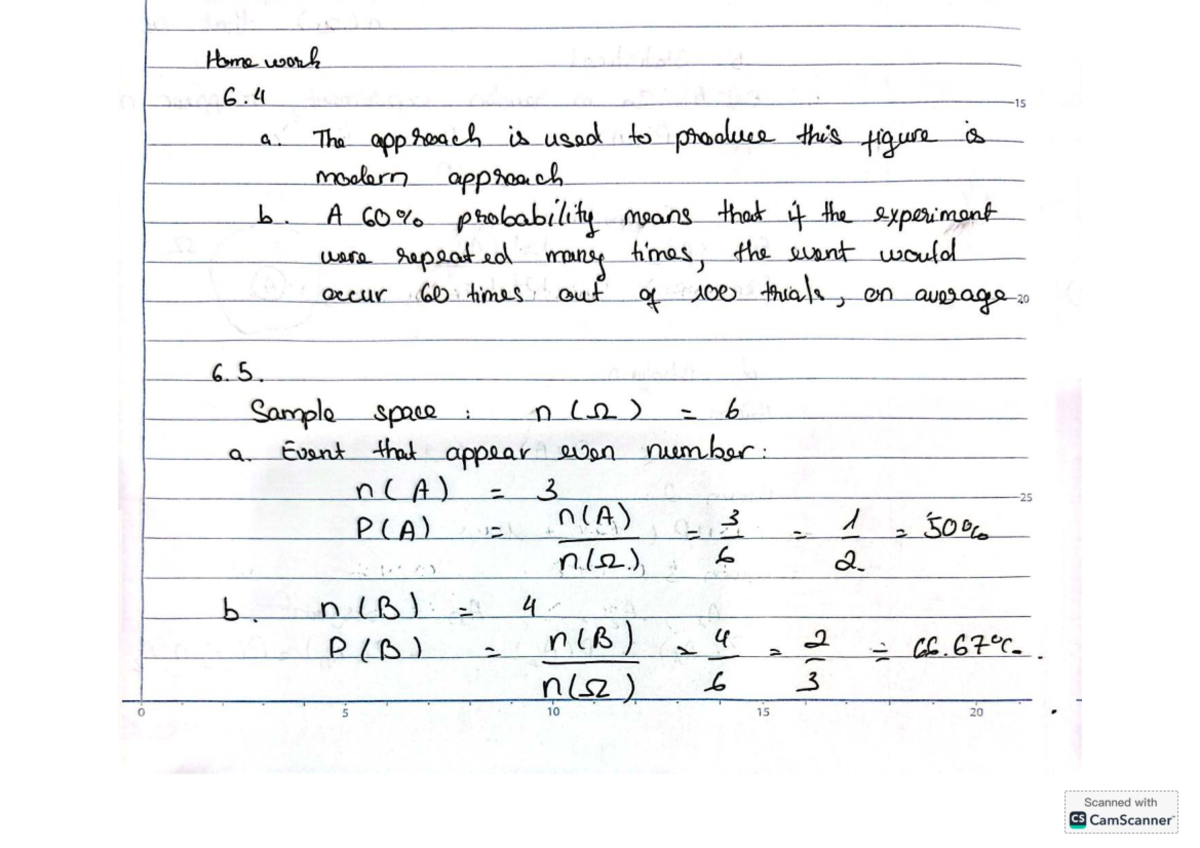 Home work
6.4
15
a. The approach is used to produce this figure is
modern approach
b. A 60% probability means that if the experiment
were repeated many times, the event would
occur 60 times out of 100 trials, on average
20
6.5.
Sample space : n (Ω) = 6
a. Event that appear even number:
n(A) = 3
25
P(A) = n(A) / n(Ω) = 3/6 = 1/2 = 50%
b. n(B) = 4
P(B) = n(B) / n(Ω) = 4/6 = 2/3 = 66.67%.
0 5 10 15 20
Scanned with
CS CamScanner